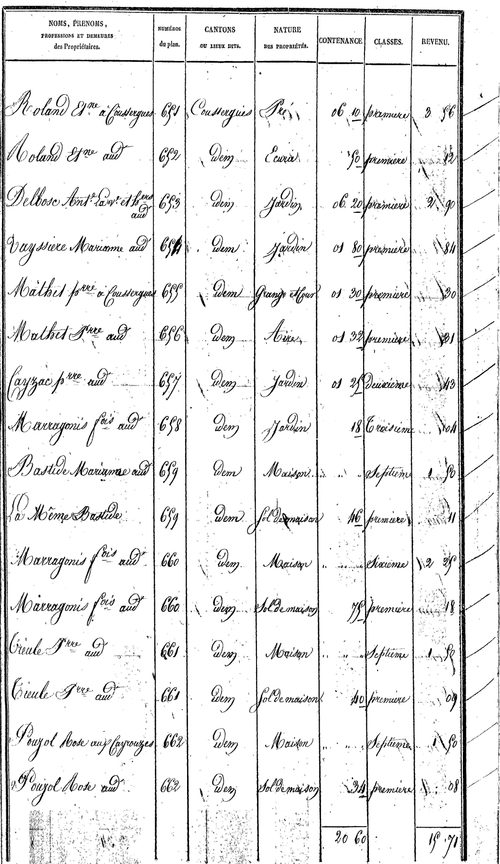 NOMS, PRÉNOMS, PROFESSIONS ET DEMEURES des Propriétaires. NUMÉROS du plan. CANTONS OU LIEUX DITS. NATURE DES PROPRIÉTÉS. CONTENANCE. CLASSES. REVENU.
Roland Etne à Coussergues 651 Coussergues Pré 06 10 première 3 56
Roland Etne aud 652 idem Ecurie 50 première 12
Delbosc Ant. la ve et hers aud 653 idem Jardin 06 20 première 2 90
Vayssiere Marianne aud 654 idem Jardin 01 80 première 84
Mathet pre à Coussergues 655 idem Grange et Cour 01 30 première 30
Mathet Pre aud 656 idem Aire 01 32 première 31
Cayzac pre aud 657 idem Jardin 01 25 deuxième 43
Marragonis fois aud 658 idem Jardin 18 troisième 04
Bastide Marianne aud 659 idem Maison septième 1 50
La Même Bastide 659 idem Sol de maison 46 première 11
Marragonis fois aud 660 idem Maison Sixième 2 25
Marragonis fois aud 660 idem Sol de maison 75 première 18
Cieule Pre aud 661 idem Maison septième 1 50
Cieule Pre aud 661 idem Sol de maison 40 première 09
Pouzol Rose aux Cayrouzes 662 idem Maison Septième 1 50
Pouzol Rose aud 662 idem Sol de maison 34 première 08
20 60 15 71